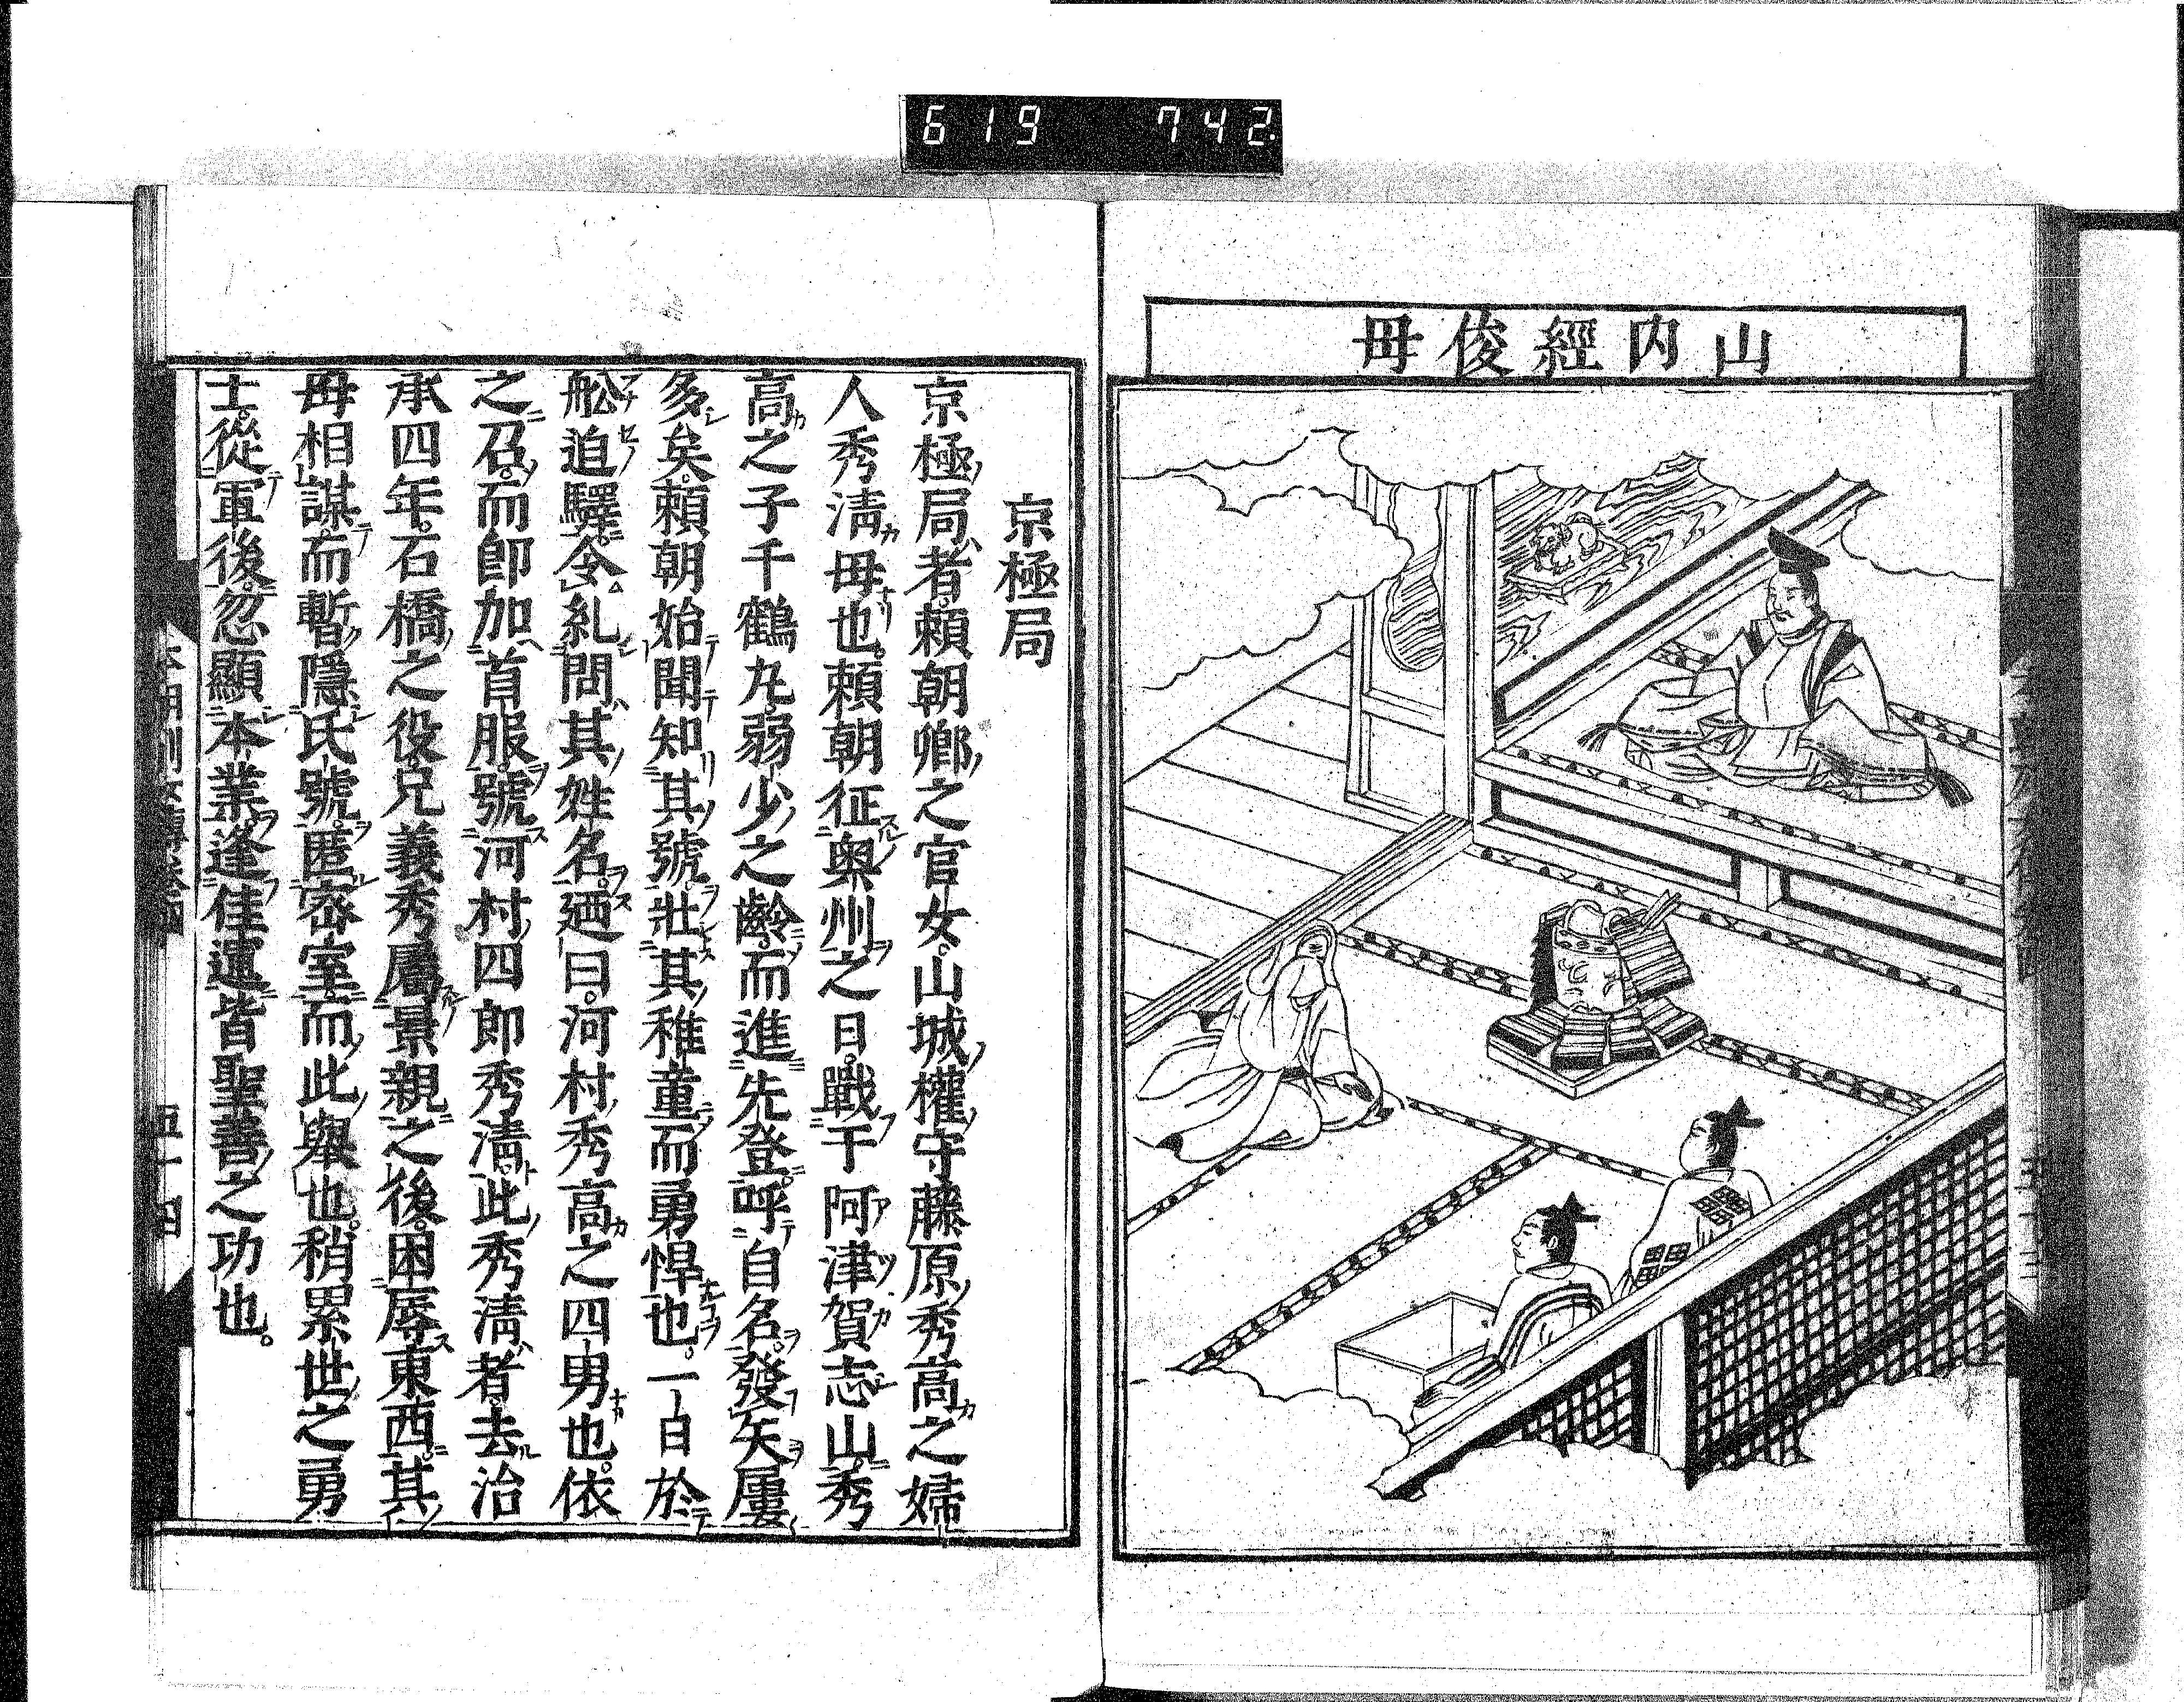 619 742
山内經俊母
京極局
京極局者頼朝卿之官女。山城權守藤原秀高之婦
人秀淸母也。頼朝征奥州之日。戰于阿津賀志山。秀
高之子千鶴丸。弱少之齡而進先登。呼自名。發矢屢
多矣。頼朝始聞知其號。壯其稚童而勇悍也。一日於
舩迫驛。令糺問其姓名。廼曰。河村秀高之四男也。依
之召。而卽加首服。號河村四郎秀淸。此秀淸者。去治
承四年。石橋之役。兄義秀屬景親之後。困辱東西。其
母相謀。而暫隱氏號。匿密室。而此舉也。稍累世之勇
士。從軍後。忽顯本業。逢佳運。皆聖善之功也。